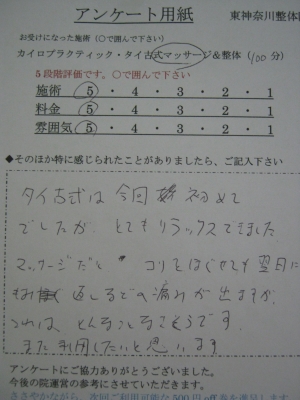 アンケート用紙 東神奈川整体院
お受けになった施術(○で囲んで下さい)
カイロプラクティック・タイ古式マッサージ&整体(100分)
5段階評価です。○で囲んで下さい。
施術 5・4・3・2・1
料金 5・4・3・2・1
雰囲気 5・4・3・2・1
◆そのほか特に感じられたことがありましたら、ご記入下さい
タイ古式は今回初めて
でしたが、とてもリラックスできました
マッサージだと コリをほぐせても翌日に
もみ返しなどの痛みが出ますが、
これは とんなことなさそうです。
また利用したいと思います
アンケートにご協力ありがとうございました。
今後の院運営の参考にさせていただきます。
ささやかながら、次回ご利用可能な500円off券を進呈します